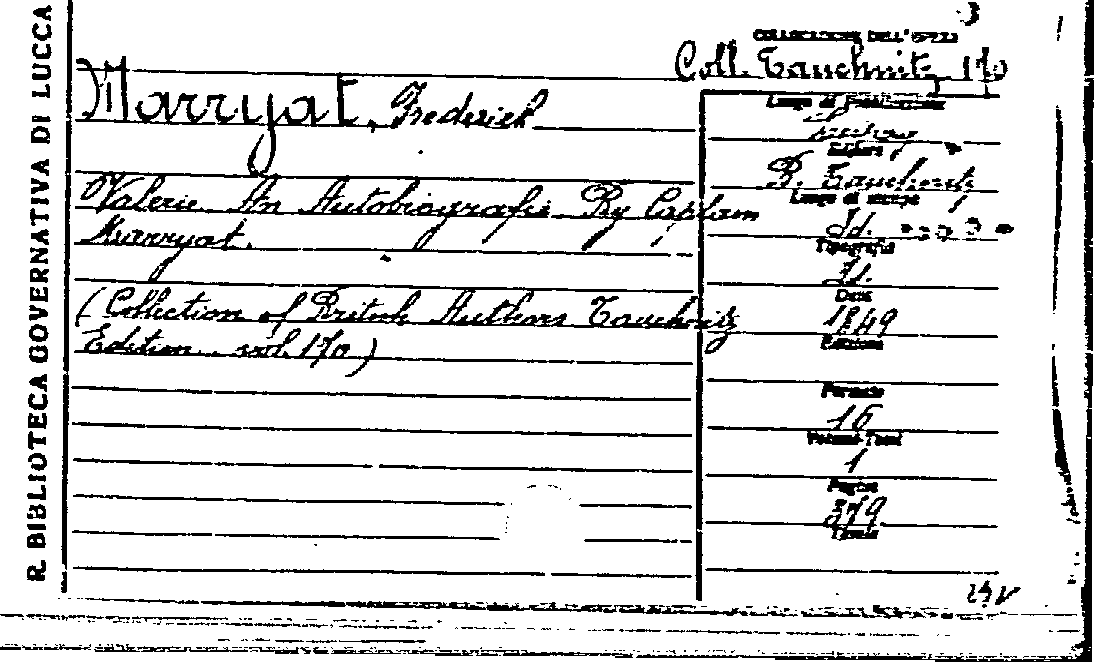 R. BIBLIOTECA GOVERNATIVA DI LUCCA
COLLOCAZIONE DELL'OPERA
Coll. Tauchnitz 170
Marryat, Frederich
Valerie. An Autobiografie. By Captain
Marryat.
(Collection of British Authors Tauchnitz
Edition. vol. 170)
Luogo di Pubblicazione
Editore
B. Tauchnitz
Luogo di stampa
Id.
Tipografia
Id.
Data
1849
Edizione
Formato
16
Volumi-Tomi
1
Pagine
379
Tavole